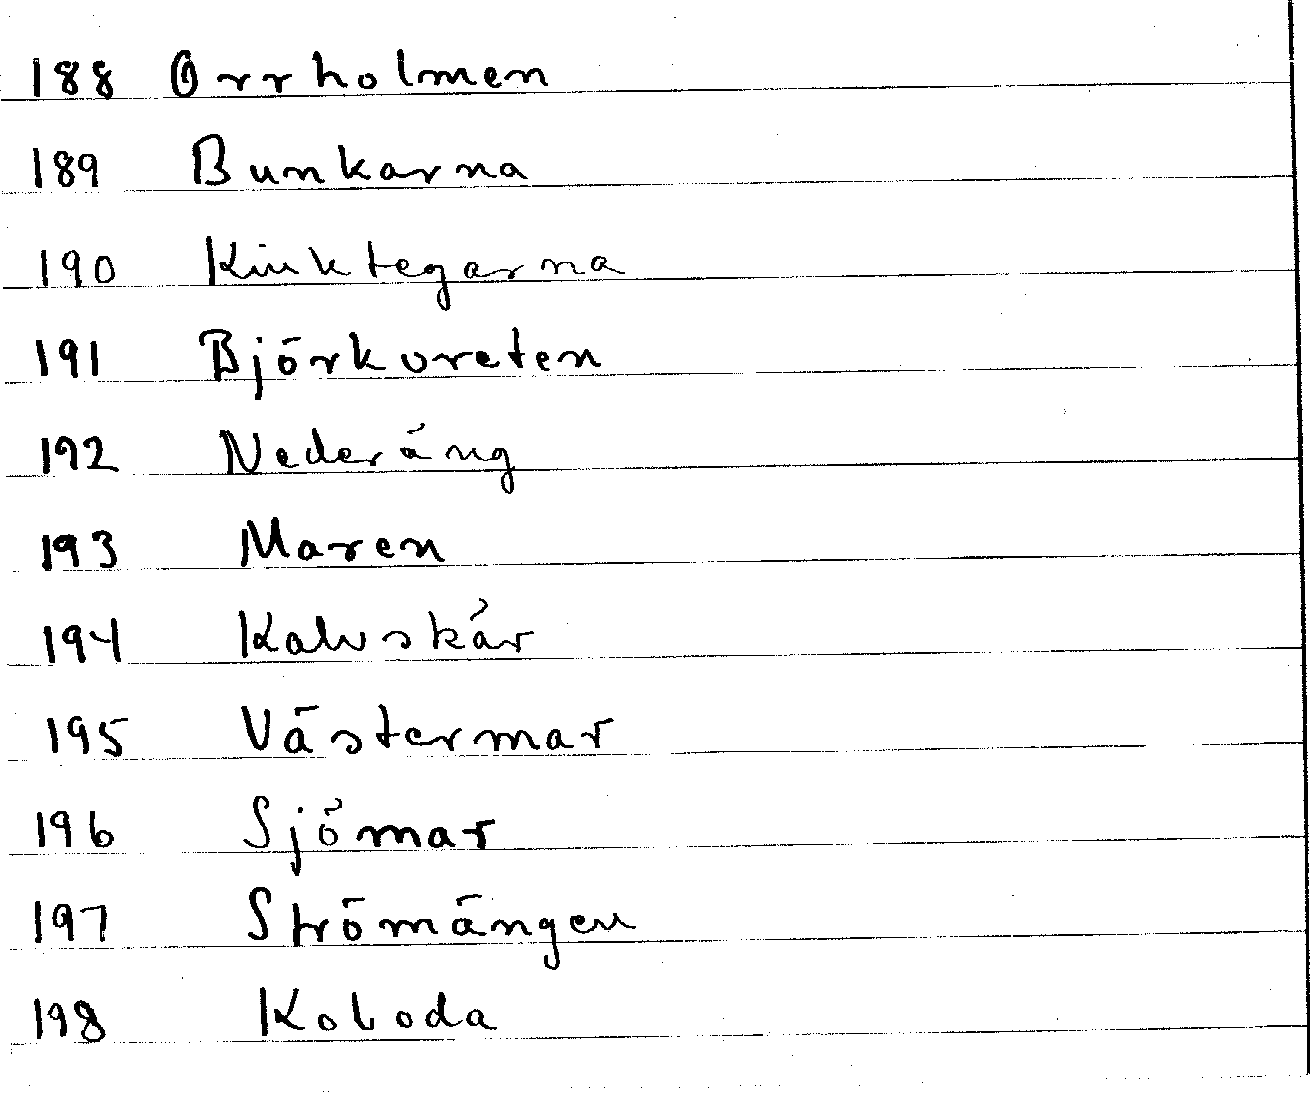 188 Orrholmen
189 Bunkarna
190 Kinktegarna
191 Björkvreten
192 Nederäng
193 Maren
194 Kalvskär
195 Västermar
196 Sjömar
197 Strömängen
198 Koboda